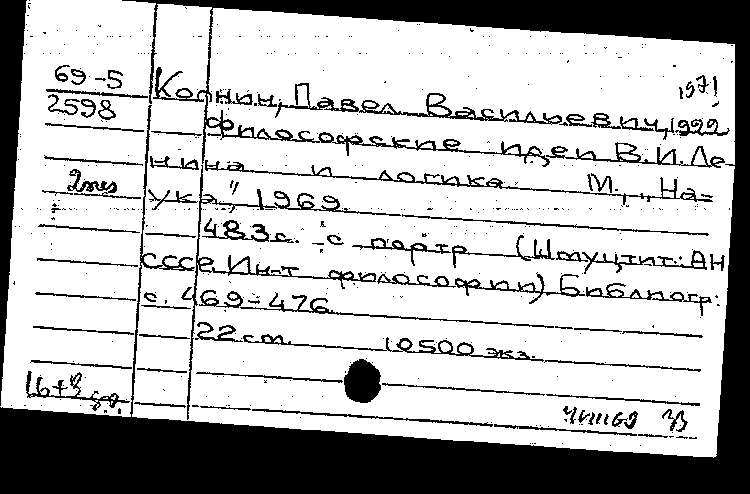 69-5
2598
1971
Копнин, Павел Васильевич, 1922
Философские идеи В.И.Ле
нина и логика. М., „На=
ука", 1969.
2экз
483с. с портр (Шмуцтит: АН
СССР. Ин-т философии) Библиогр:
с. 469-476.
22 cm. 10500 экз.
16+3